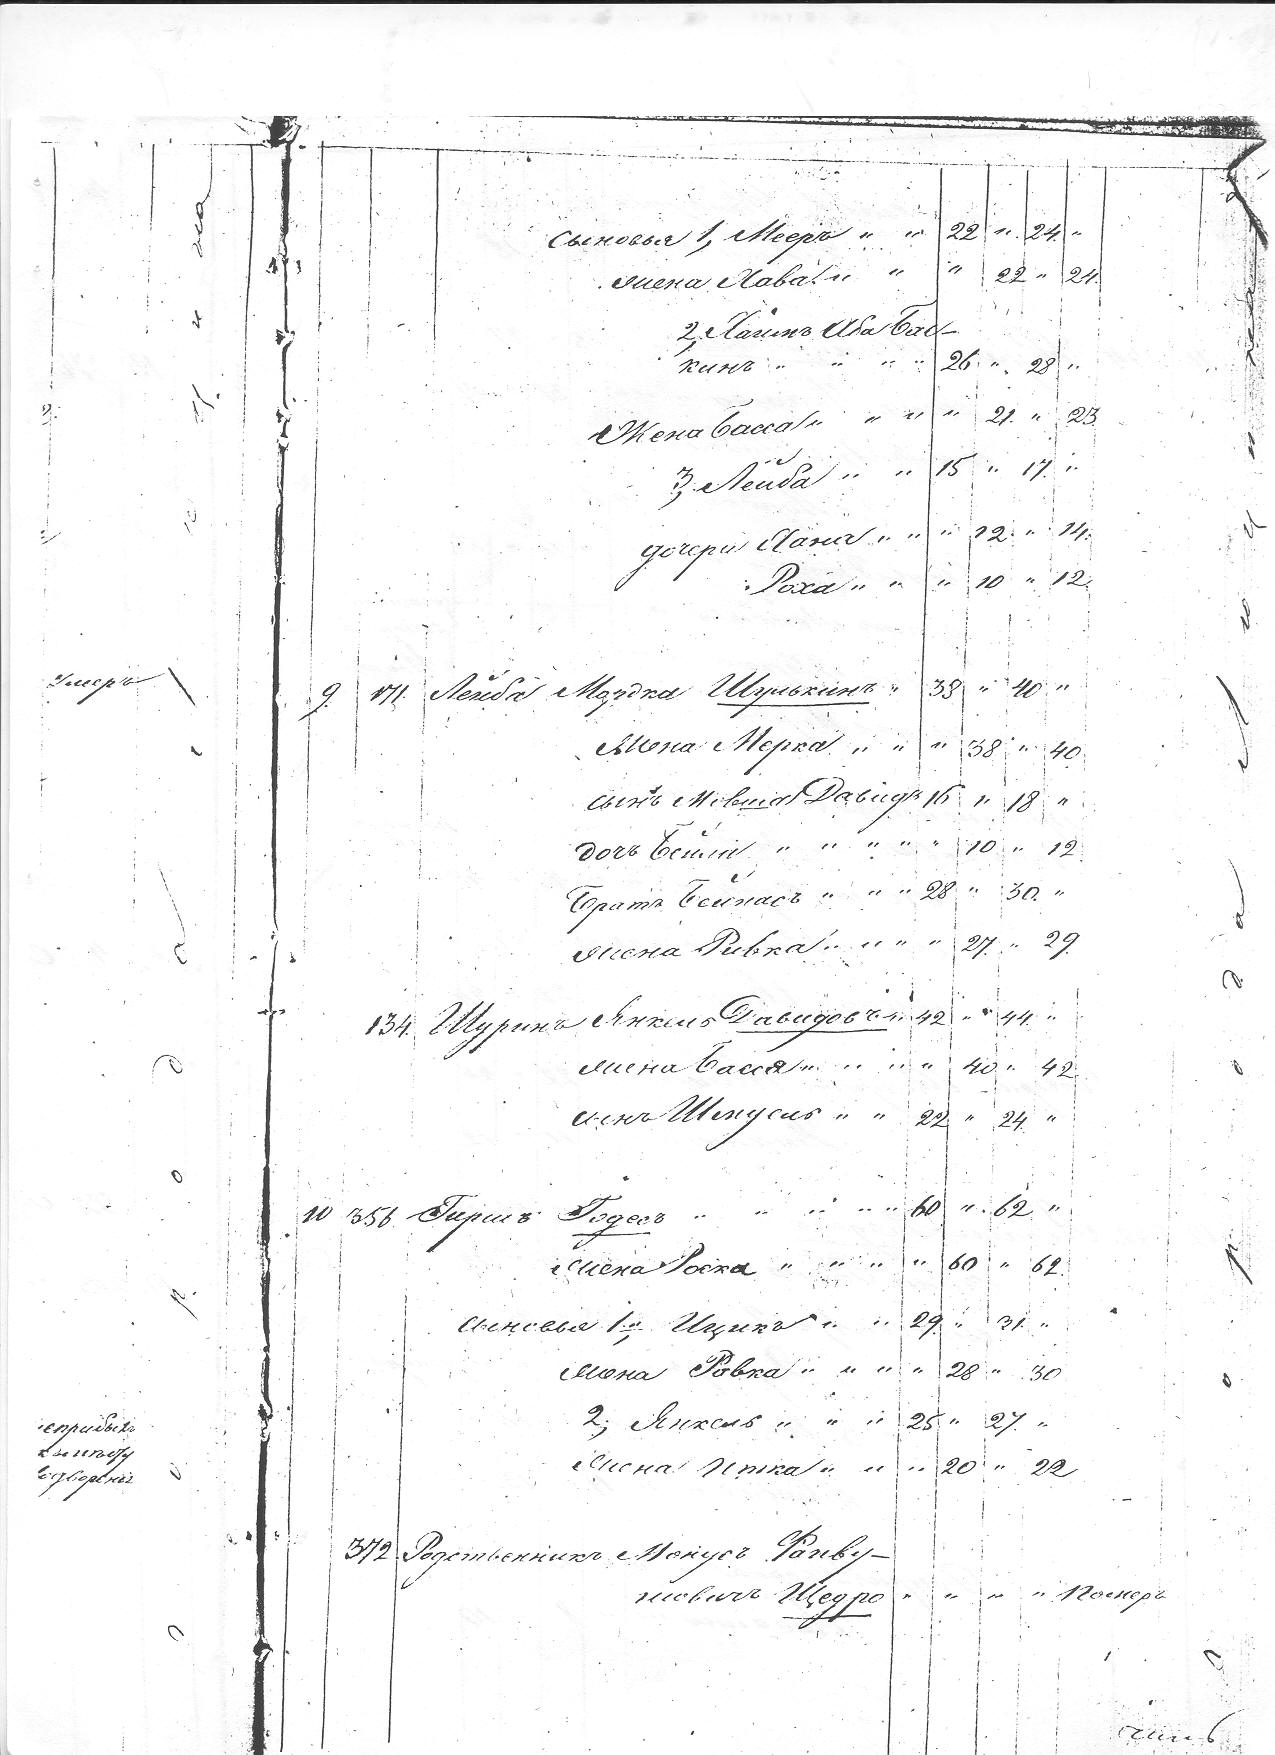 сыновья 1, Мееръ " " 22 " 24 "
жена Хава " " " 22 " 24.
2, Хаимъ Аба Бас-
кинъ " " " " 26 " 28 "
Жена Басса " " " " 21. " 23
3, Лейба " " 15 " 17. "
дочери Хана " " " 12. " 14.
Роха " " " 10 " 12.
Умеръ
9. 171. Лейба Мордка Шулькинъ " 38 " 40 "
жена Мерка " " " 38 " 40.
сынъ Мовша Давидъ 16 " 18 "
дочь Бейля " " " " " 10 " 12
Братъ Бейнасъ " " " 28 " 30. "
жена Ривка " " " " 27. " 29.
134. Шуринъ Янкель Давидовъ " 42 " 44. "
жена Басся " " " " 40 " 42
сынъ " " 22 " 24. "
10 356 Гиршъ Годесъ " " " " " 60 " 62 "
жена Роска " " " " 60 " 62.
сыновья 1, Ицикъ " " 29. " 31. "
жена Ровка " " " " 28 " 30
2, Янкель " " " 25 " 27. "
жена Итка " " " 20 " 22
372 Родственникъ
Щедро " " " "